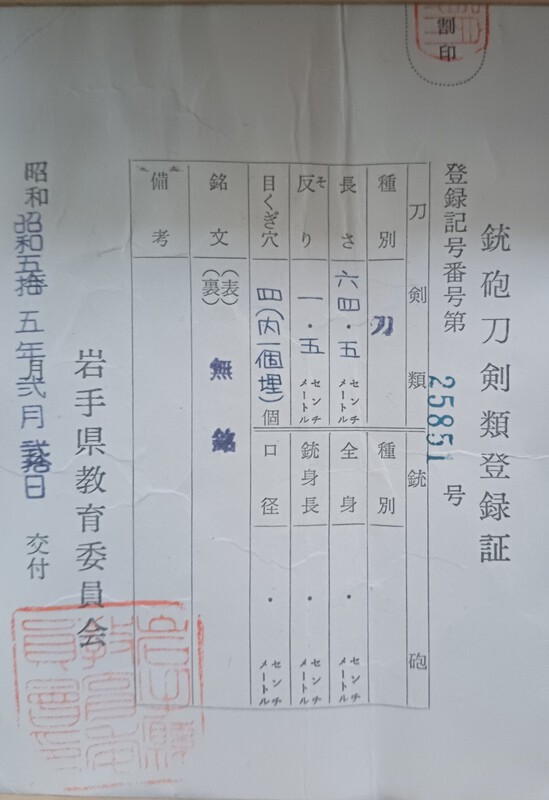 割印
銃砲刀剣類登録証
登録記号番号第 25851 号
刀剣類
種別 刀
長さ 六四・五 センチメートル
反り そ 一・五 センチメートル
目くぎ穴 四(内一個埋) 個
銘文 (表)(裏) 無銘
備考
銃砲
種別
全長 ・ センチメートル
銃身長 ・ センチメートル
口径 ・ センチメートル
昭和昭和五拾五年弐月 日 交付
岩手県教育委員会